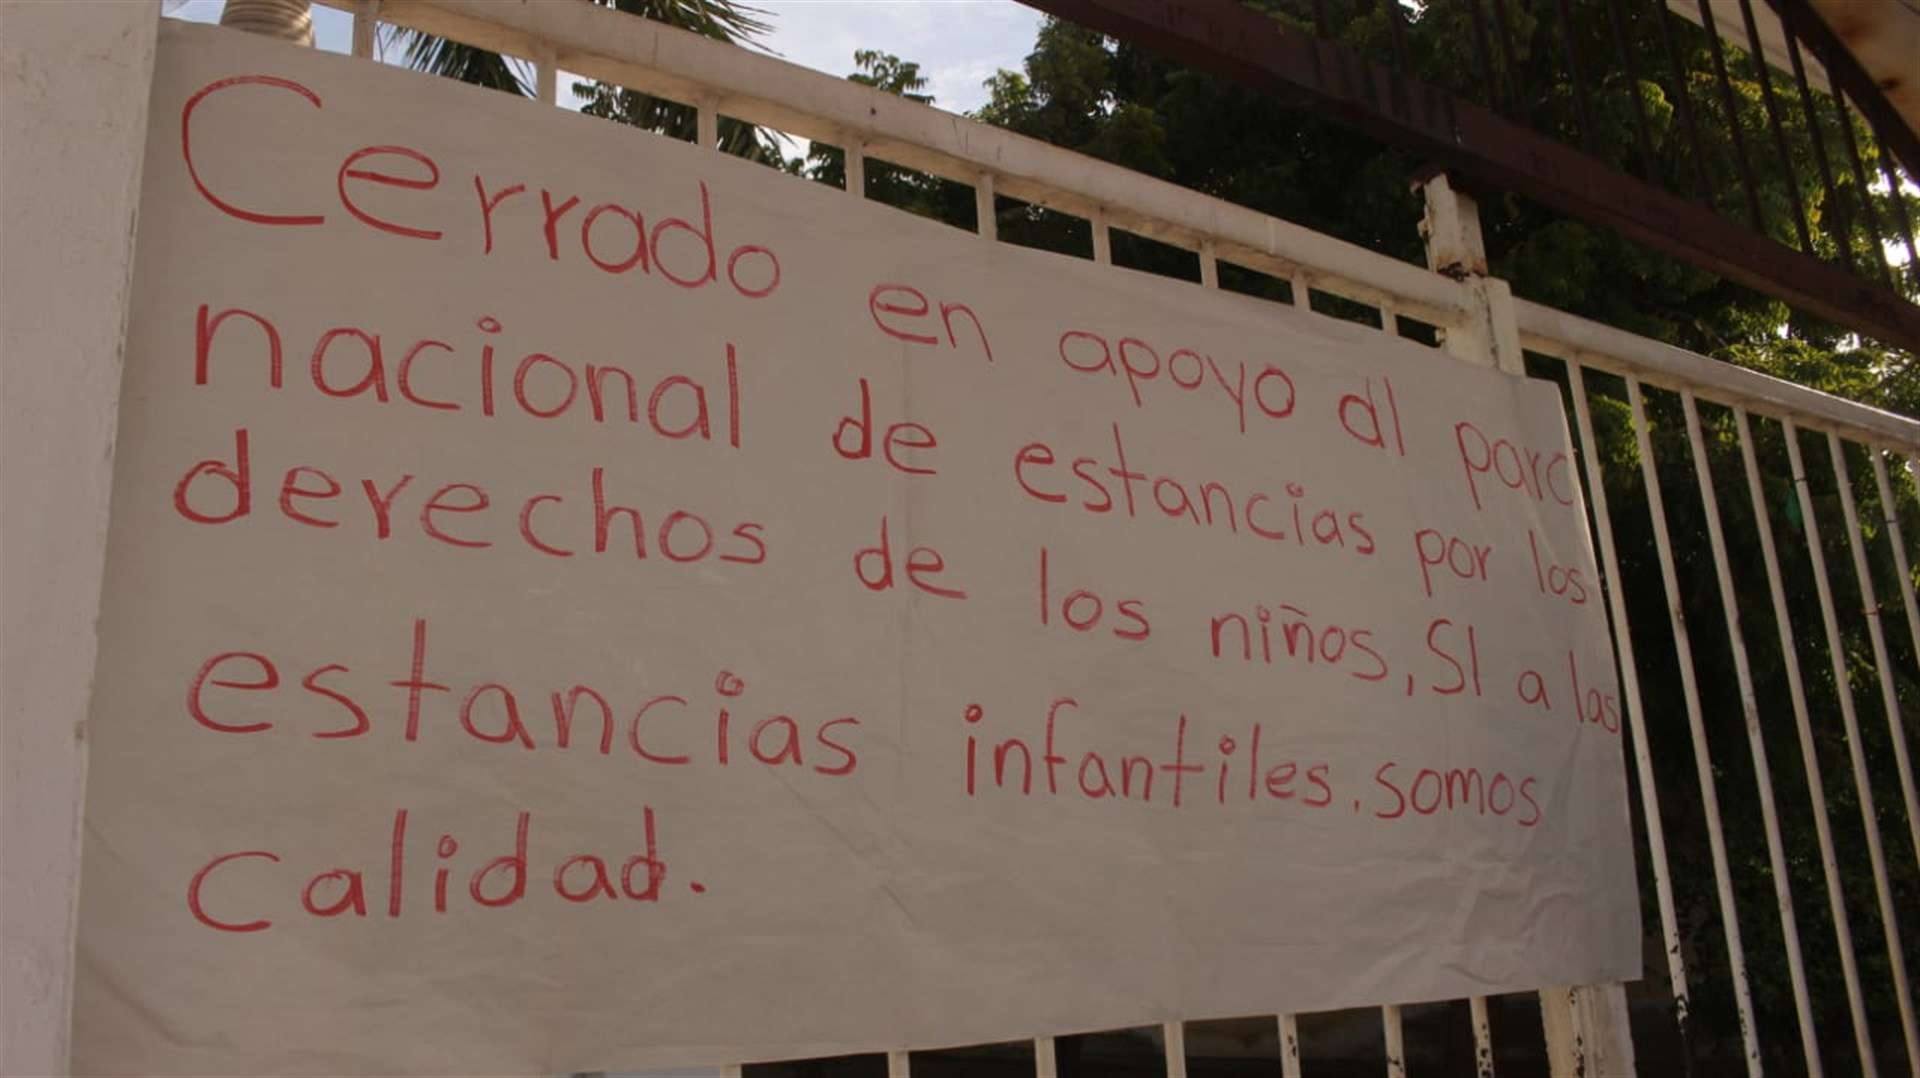 Cerrado en apoyo al paro
nacional de estancias por los
derechos de los niños, SI a las
estancias infantiles. somos
calidad.